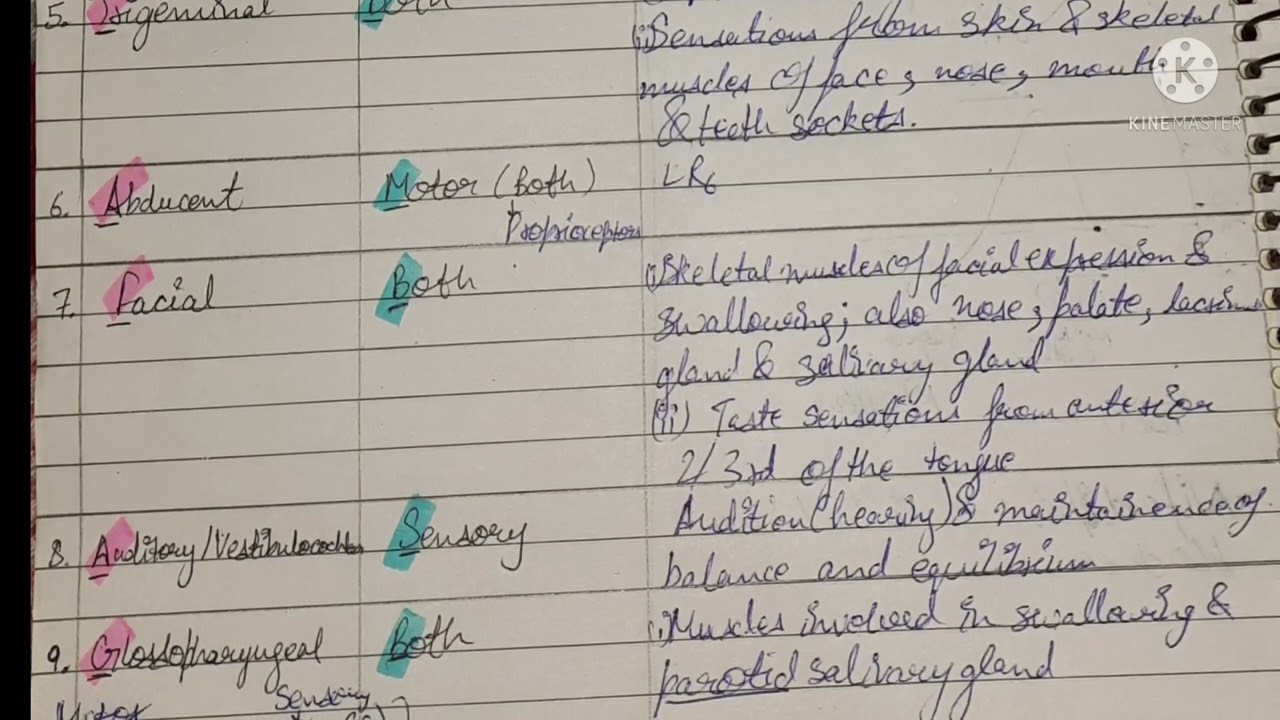 5. Trigeminal Both
(i) Sensations from skin & skeletal
muscles of face, nose, mouth
& teeth sockets.
6. Abducent Motor (Both) LR6
Proprioceptors
7. Facial Both (i) Skeletal muscles of facial expression &
swallowing; also nose, palate,
gland & salivary gland
(ii) Taste sensations from anterior
2/3rd of the tongue
8. Auditory/Vestibulocochlea Sensory Audition (hearing) & maintainence of
balance and equilibrium
9. Glossopharyngeal Both (i) Muscles involved in swallowing &
parotid salivary gland
Motor Sensory
K
KINEMASTER